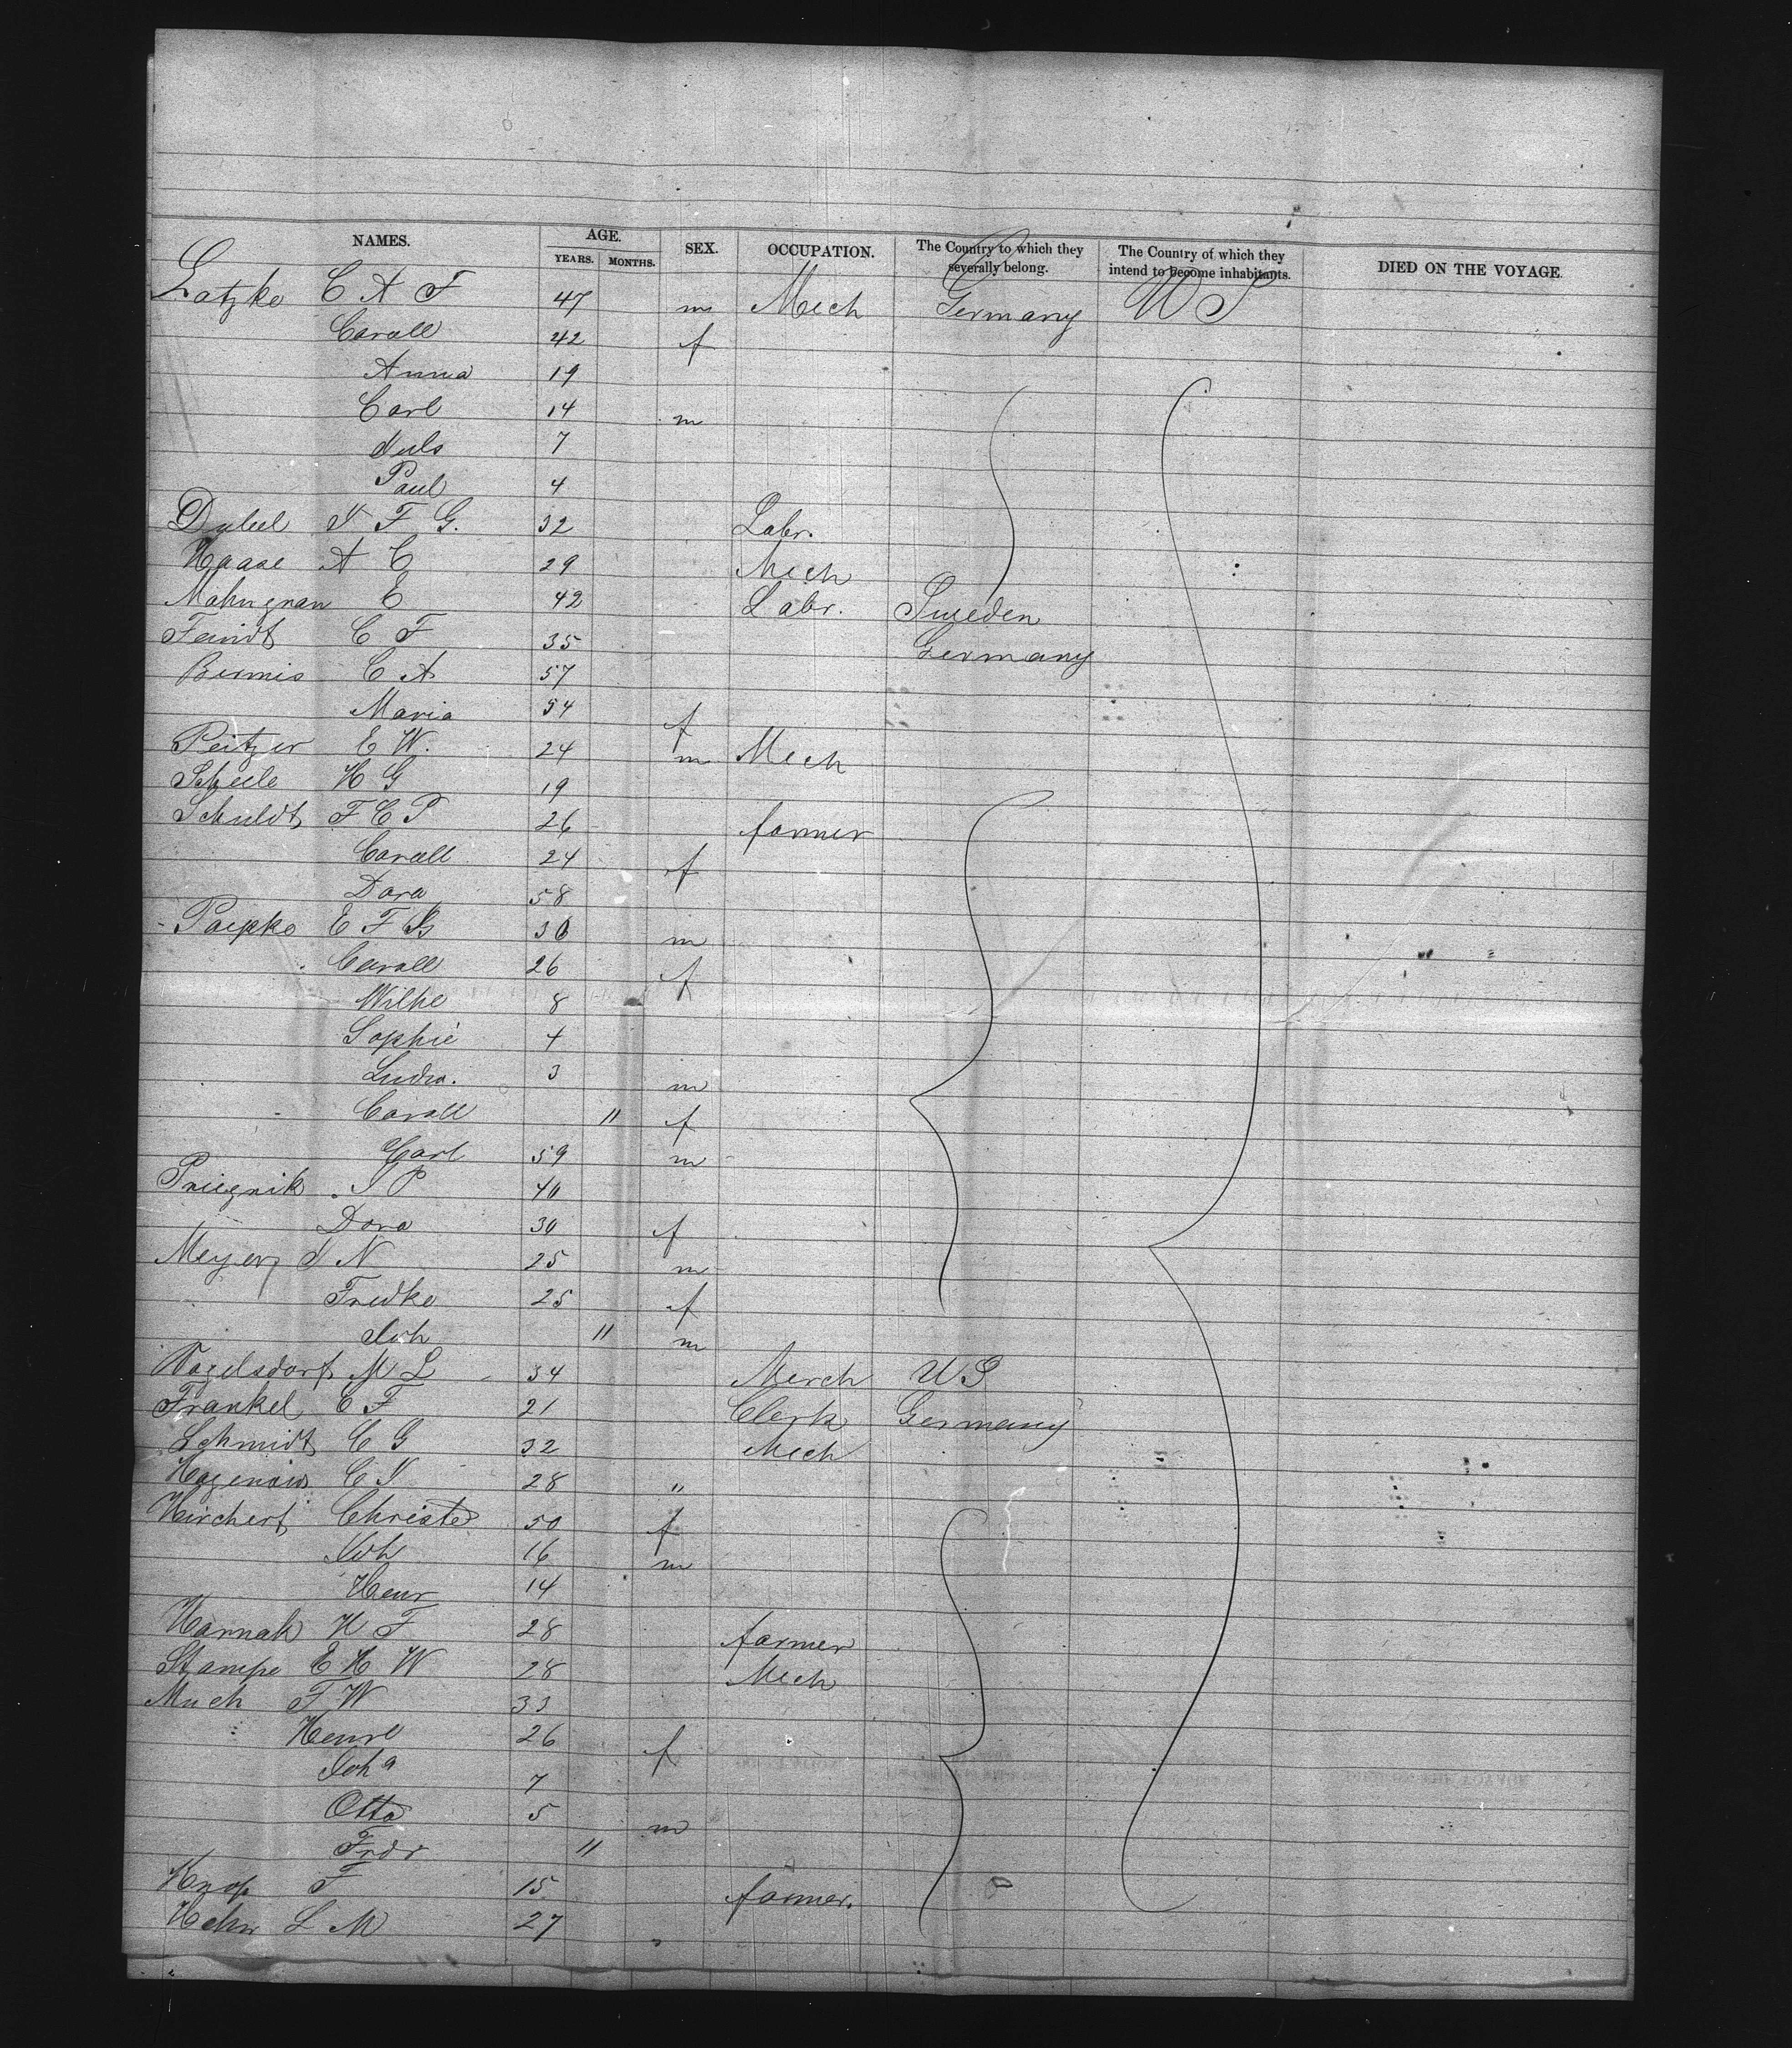 NAMES. AGE. YEARS. MONTHS. SEX. OCCUPATION. The Country to which they severally belong. The Country of which they intend to become inhabitants. DIED ON THE VOYAGE.
Latzke C A F 47 m Mech Germany U S
Caroll 42 f
Anna 19
Carl 14 m
Juls 7
Paul 4
Dubel J F G. 32 Labr.
Haase A C 29 Mech
E 42 Labr. Sweden
C F 35 Germany
C A 57
Maria 54 f
Peitzer E W. 24 m Mech
Scheele H G 19
Schuldt F C P 26 farmer
Caroll 24 f
Dora 58
Paepke E F 36 m
Caroll 26 f
Wilhe 8
Sophie 4
Ludw. 3 m
Caroll 11 f
Carl 59 m
Priegnik J P 40
Dora 30 f
Meyer J N 25 m
Fredke 25 f
Joh 11 m
Vogelsdorf M L 34 Merch U S
Frankel C F 21 Clerk Germany
Schmidt C G 32 Mech
C J 28 "
Hirchert Christe 50 f
Joh 16 m
Henr 14
Harnak H F 28 farmer
Stampe E H W 28 Mech
Much F W 33
Henrl 26 f
Joha 7
Otto 5 m
Frdr 11
Knop F 15 farmer.
Hehn L M 27